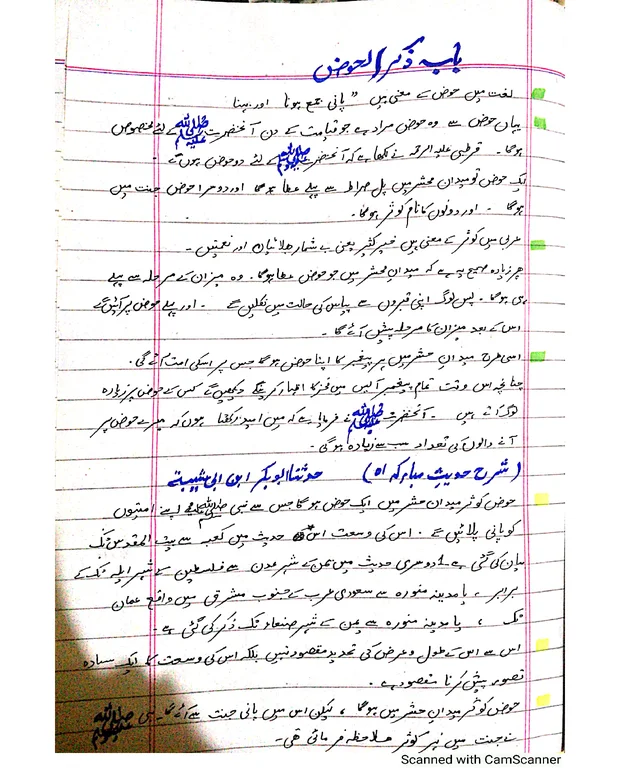 باب ذکر الحوض
لغت میں حوض کے معنی ہیں "پانی جمع ہونا اور بہنا
بیان حوض سے وہ حوض مراد ہے جو قیامت کے دن آنحضرت ﷺ کے لئے مخصوص
ہوگا۔ قرطبی علیہ الرحمہ نے لکھا ہے کہ آنحضرت ﷺ کے لئے دو حوض ہوں گے۔
ایک حوض تو میدان محشر میں پل صراط سے پہلے عطا ہوگا اور دوسرا حوض جنت میں
ہوگا ۔ اور دونوں کا نام کوثر ہوگا۔
عربی میں کوثر کے معنی ہیں خیر کثیر یعنی بے شمار بھلائیاں اور نعمتیں ۔
پھر زیادہ صحیح یہ ہے کہ میدان محشر میں جو حوض عطا ہوگا۔ وہ میزان کے مرحلہ سے پہلے
ہی ہوگا۔ پس لوگ اپنی قبروں سے پیاس کی حالت میں نکلیں گے ۔ اور پہلے حوض پر آئیں گے
اس کے بعد میزان کا مرحلہ پیش آئے گا۔
اسی طرح میدان حشر میں ہر پیغمبر کا اپنا حوض ہوگا جس پر اسکی امت آئے گی۔
چنانچہ اس وقت تمام پیغمبر آپس میں فخر کا اظہار کرینگے دیکھیں گے کس کے حوض پر زیادہ
لوگ آتے ہیں ۔ آنحضرت ﷺ نے فرمایا ہے کہ میں امید رکھتا ہوں کہ میرے حوض پر
آنے والوں کی تعداد سب سے زیادہ ہوگی۔
(شرح حدیث مبارکہ ۱۵) حدثنا ابوبکر ابن ابی شیبۃ
حوض کوثر میدان حشر میں ایک حوض ہوگا جس سے نبی ﷺ اپنے امتیوں
کو پانی پلائیں گے ۔ اس کی وسعت اس حدیث میں کعبہ سے بیت المقدس تک
بیان کی گئی ہے۔ دوسری حدیث میں یمن کے شہر عدن سے فلسطین کے شہر ایلہ تک کے
برابر ، یا مدینہ منورہ سے سعودی عرب کے جنوب مشرق میں واقع عمان
تک ، یا مدینہ منورہ سے یمن کے شہر صنعاء تک ذکر کی گئی ہے۔
اس سے اس کے طول و عرض کی تحدید مقصود نہیں بلکہ اس کی وسعت کا ایک سادہ
تصور پیش کرنا مقصود ہے۔
حوض کوثر میدان حشر میں ہوگا ، لیکن اس میں پانی جنت سے آئے گا۔ نبی ﷺ
نے جنت میں نہر کوثر ملاحظہ فرمائی تھی۔
Scanned with CamScanner